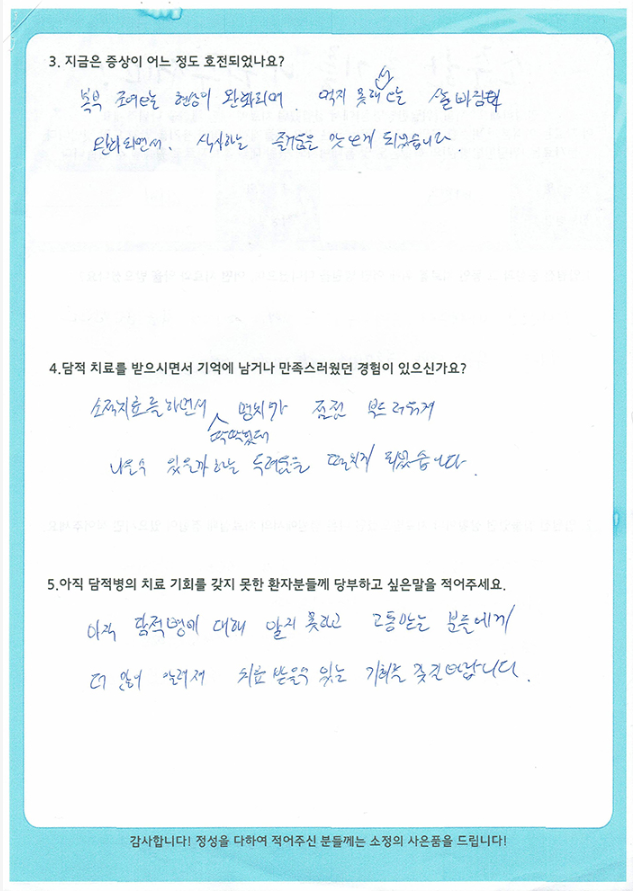 3. 지금은 증상이 어느 정도 호전되었나요?
복부 조여드는 현상이 완화되며. 먹지 못해
완화되면서. 식사하는 즐거움을 맛보게 되었습니다.
4.담적 치료를 받으시면서 기억에 남거나 만족스러웠던 경험이 있으신가요?
소적치료를 하면서 딱딱했던 명치가 점점 부드러워져
나을수 있을까 하는 두려움을 떨치게 되었습니다.
5.아직 담적병의 치료 기회를 갖지 못한 환자분들께 당부하고 싶은말을 적어주세요.
아직 담적병에 대해 알지 못하고 고통받는 분들에게
더 널리 알려져 치료 받을수 있는 기회를 갖길 바랍니다.
감사합니다! 정성을 다하여 적어주신 분들께는 소정의 사은품을 드립니다!